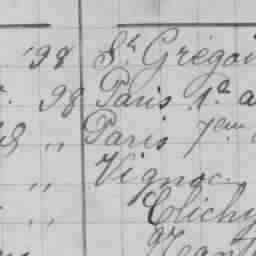 '98 St Grégoi
98 Paris 1.a a
" Paris 7eme
" Vignoc
" Clichy